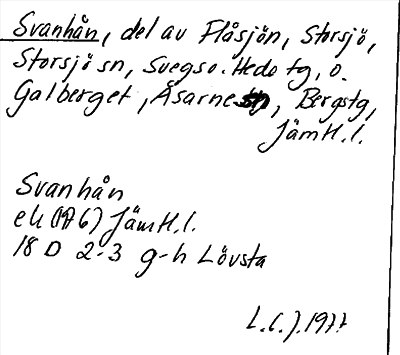 Svanhån, del av Flåsjön, Storsjö,
Storsjö sn, Svegs o. Hede tg, o.
Galberget, Åsarne, Bergs tg,
Jämtl. l.
Svanhån
ek (176) Jämtl. l.
18 D 2-3 g-h Lövsta
L. C. J. 1977